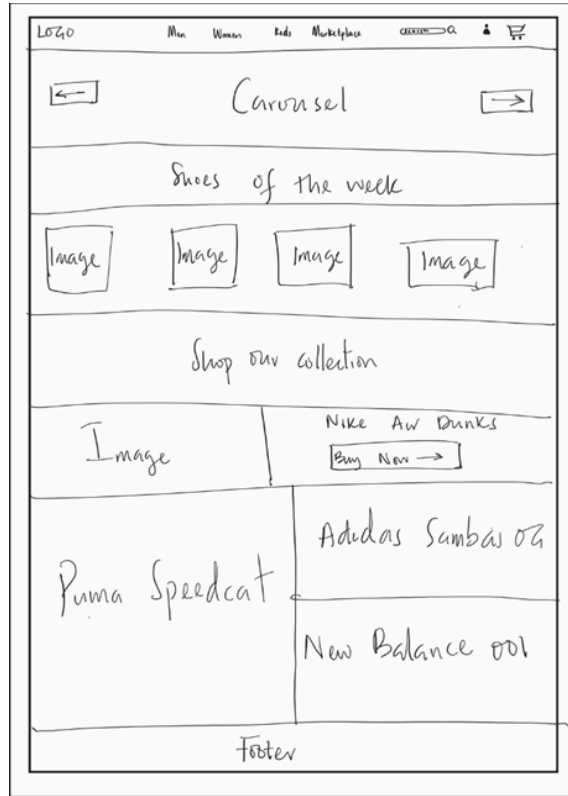 LOGO Men Women Kids Marketplace search
← Carousel →
Shoes of the week
Image Image Image Image
Shop our collection
Image
Nike Aw Dunks
Buy Now →
Puma Speedcat
Adidas Sambas OG
New Balance 001
Footer